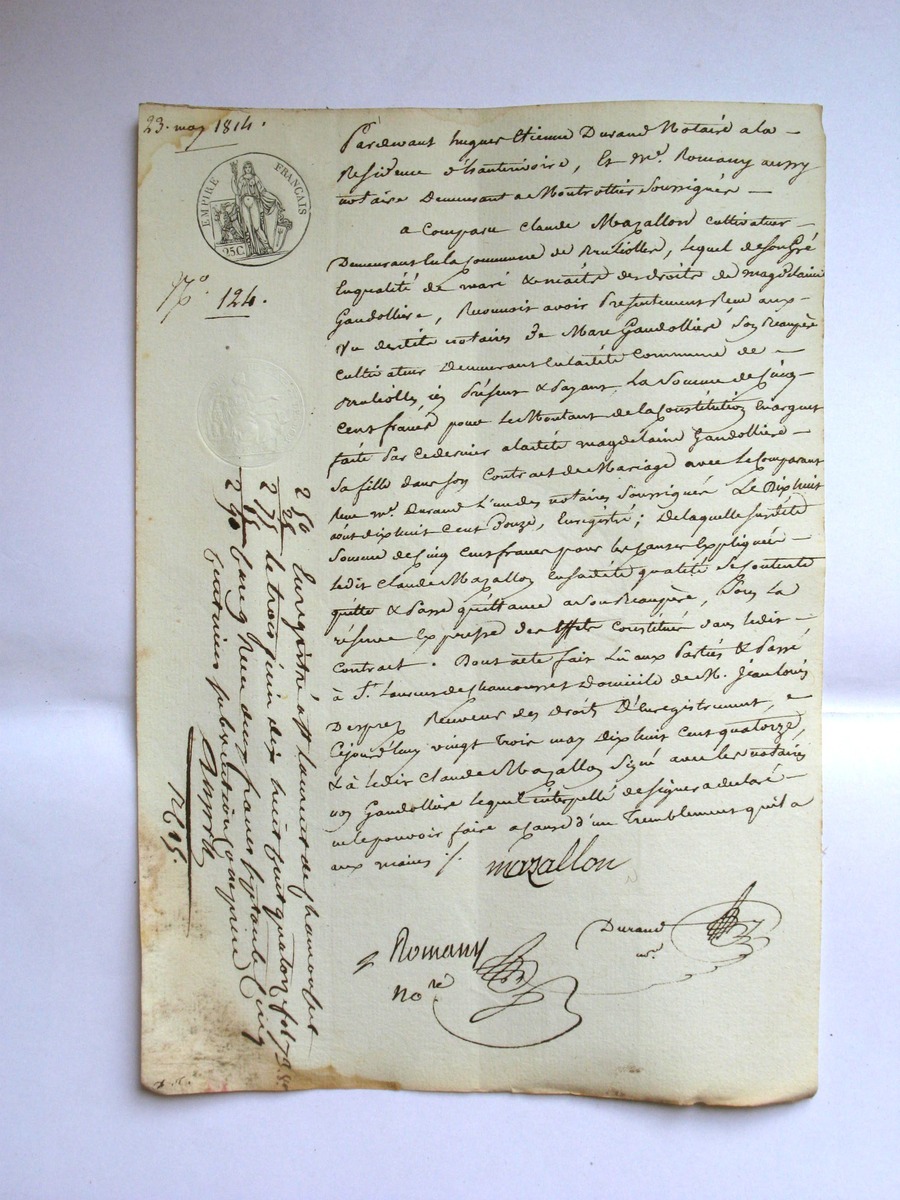 23. may 1814.
EMPIRE FRANÇAIS
25C
No. 124.
Pardevant hugues Etienne Durand Notaire a la
Residence d'hauterivoire, Et Me. Romany aussy
notaire Demeurant a Montrottier Soussignés
a Comparu Claude Mazallon cultivateur
Demeurant En la Commune de Brulioles, lequel de Son Gré
En qualité de mari & maitre des droits de magdelaine
Gaudolliere, Reconnoit avoir Presentement Recu aux
Vu desdits notaires De Marc Gaudolliere Son Beaupère
cultivateur Demeurant En ladite Commune de
Brulioles, ici Présent & Payant, La Somme de Cinq
Cent francs pour Le Montant de la Constitution En argent
faite Par ce dernier a ladite magdelaine Gaudolliere
Sa fille dans Son Contract de Mariage avec Le Comparant
Recu me. Durand L'un des notaires Soussignés Le Dix huit
août dix huit Cent Douze, Enregistré; De laquelle Susdite
Somme de Cinq Cent francs pour les Causes Expliquées
ledit Claude Mazallon En sadite qualité Se Contente
quitte & Passe quittance a Son Beaupère, Sous La
réserve Expresse des Effets Constitués dans ledit
Contract. Dont acte fait Lû aux Parties & Passé
à St. Laurent de Chamousset Domicile de M. Jean Louis
Desprez Receveur des Droits D'Enregistrement,
Cejourd'huy vingt Trois may Dix huit Cent quatorze,
& à ledit Claude Mazallon Signé avec les notaires
non Gaudolliere lequel interpellé de Signer a declaré
ne le pouvoir faire a Cause d'un Tremblement qu'il a
aux mains ./.
mazallon
Durand
nre.
Romany
No re
Enregistré a St Laurent de Chamousset
le trois juin dix huit Cent quatorze fol. 73
Reçu deux francs Septante Cinq
Centimes Subvention Comprise
2 50
25
2 75
15
2 90